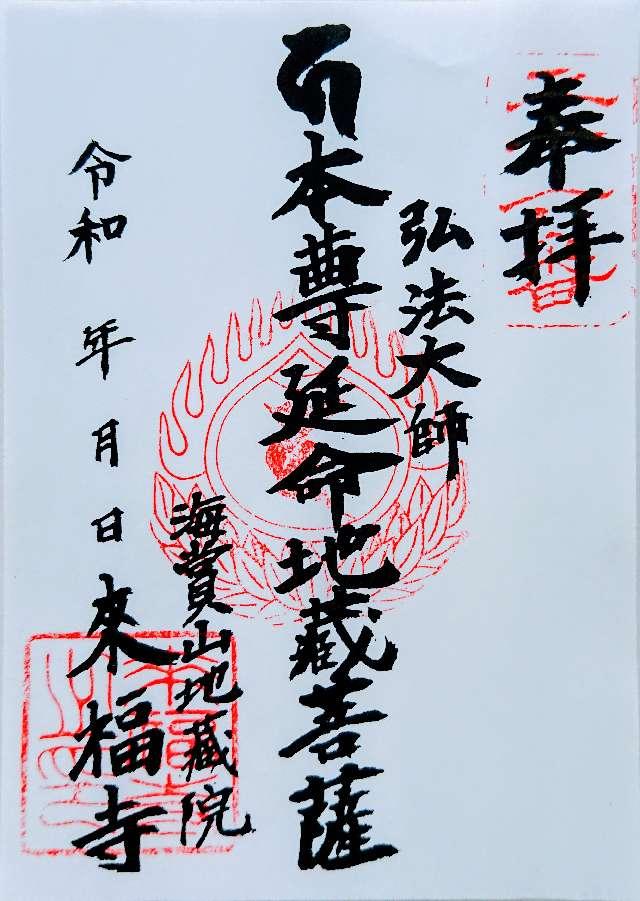 奉拝
弘法大師
本尊延命地蔵菩薩
海賞山地蔵院
令和 年 月 日 来福寺